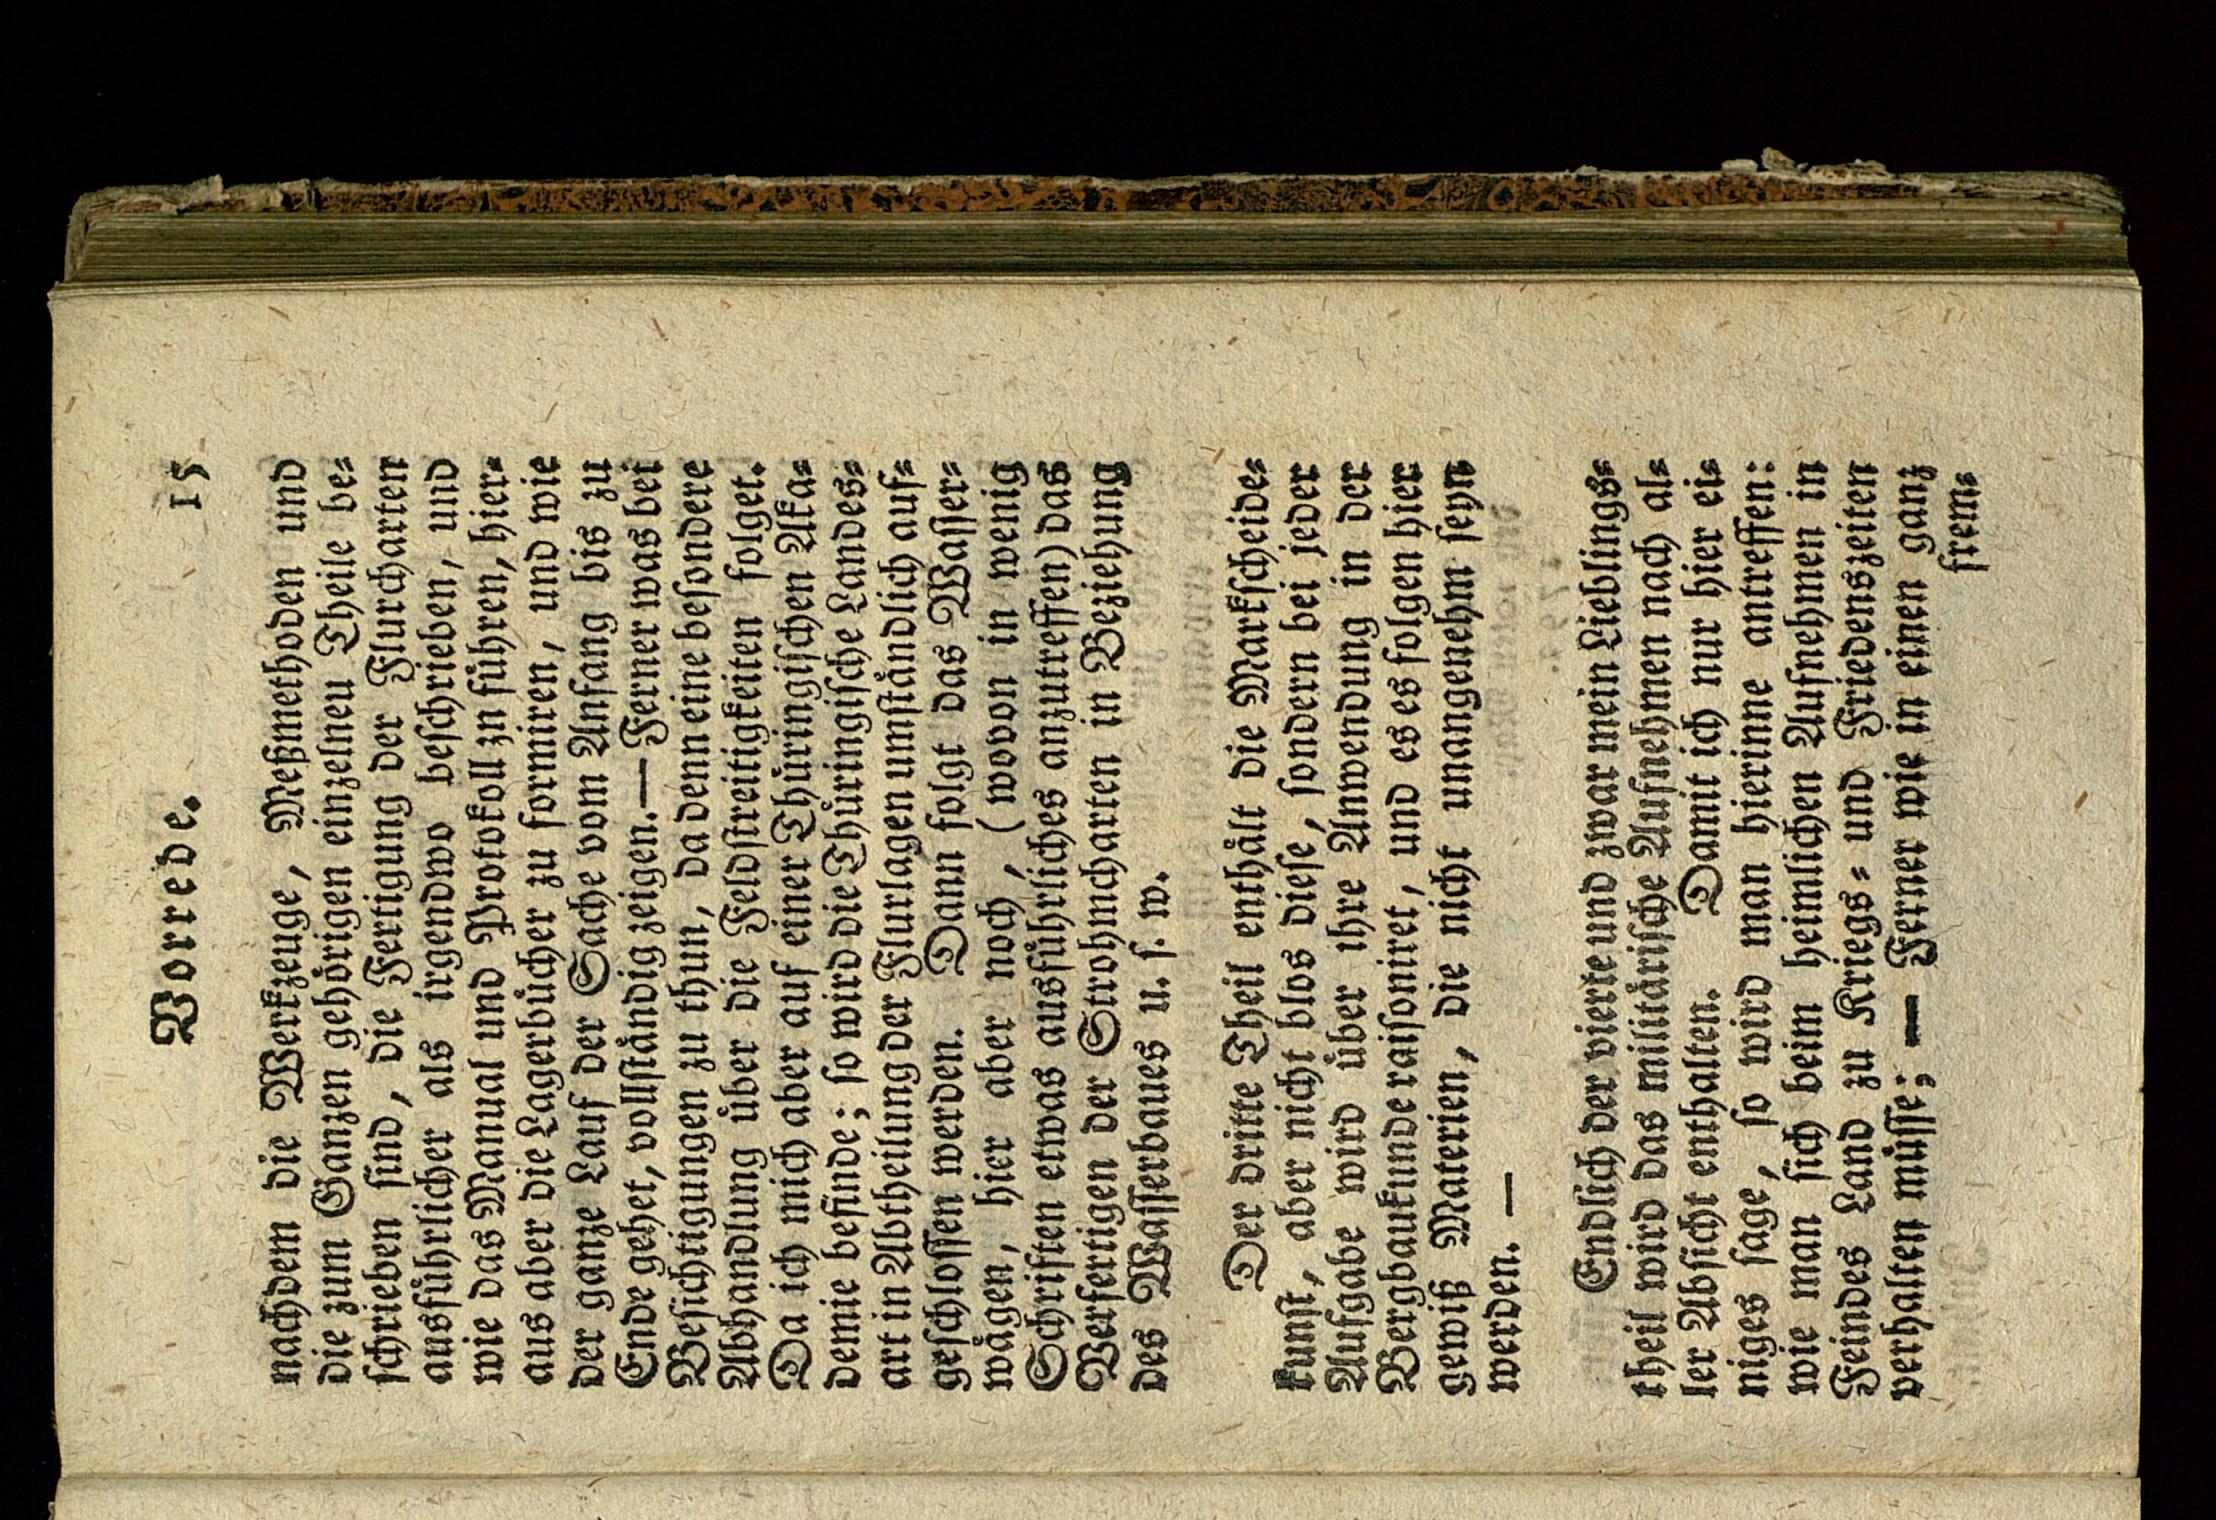 Vorrede. 15
nachdem die Werkzeuge, Meßmethoden und
die zum Ganzen gehörigen einzelneu Theile be-
schrieben sind, die Fertigung der Flurcharten
ausführlicher als irgendwo beschrieben, und
wie das Manual und Protokoll zn führen, hier-
aus aber die Lagerbücher zu formiren, und wie
der ganze Lauf der Sache vom Anfang bis zu
Ende gehet, vollständig zeigen. — Ferner was bei
Besichtigungen zu thun, da denn eine besondere
Abhandlung über die Feldstreitigkeiten folget.
Da ich mich aber auf einer Thüringischen Aka-
demie befinde; so wird die Thüringische Landes-
art in Abtheilung der Flurlagen umständlich auf-
geschlossen werden. Dann folgt das Wasser-
wägen, hier aber noch, (wovon in wenig
Schriften etwas ausführliches anzutreffen) das
Verfertigen der Strohmcharten in Beziehung
des Wasserbaues u. s. w.
Der dritte Theil enthält die Markscheide-
kunst, aber nicht blos diese, sondern bei jeder
Aufgabe wird über ihre Anwendung in der
Bergbaukunde raisoniret, und es es folgen hier
gewiß Materien, die nicht unangenehm seyn
werden. —
Endlich der vierte und zwar mein Lieblings-
theil wird das militärische Aufnehmen nach al-
ler Absicht enthalten. Damit ich nur hier ei-
niges sage, so wird man hierinne antreffen:
wie man sich beim heimlichen Aufnehmen in
Feindes Land zu Kriegs- und Friedenszeiten
verhalten müsse; — Ferner wie in einen ganz
frem-